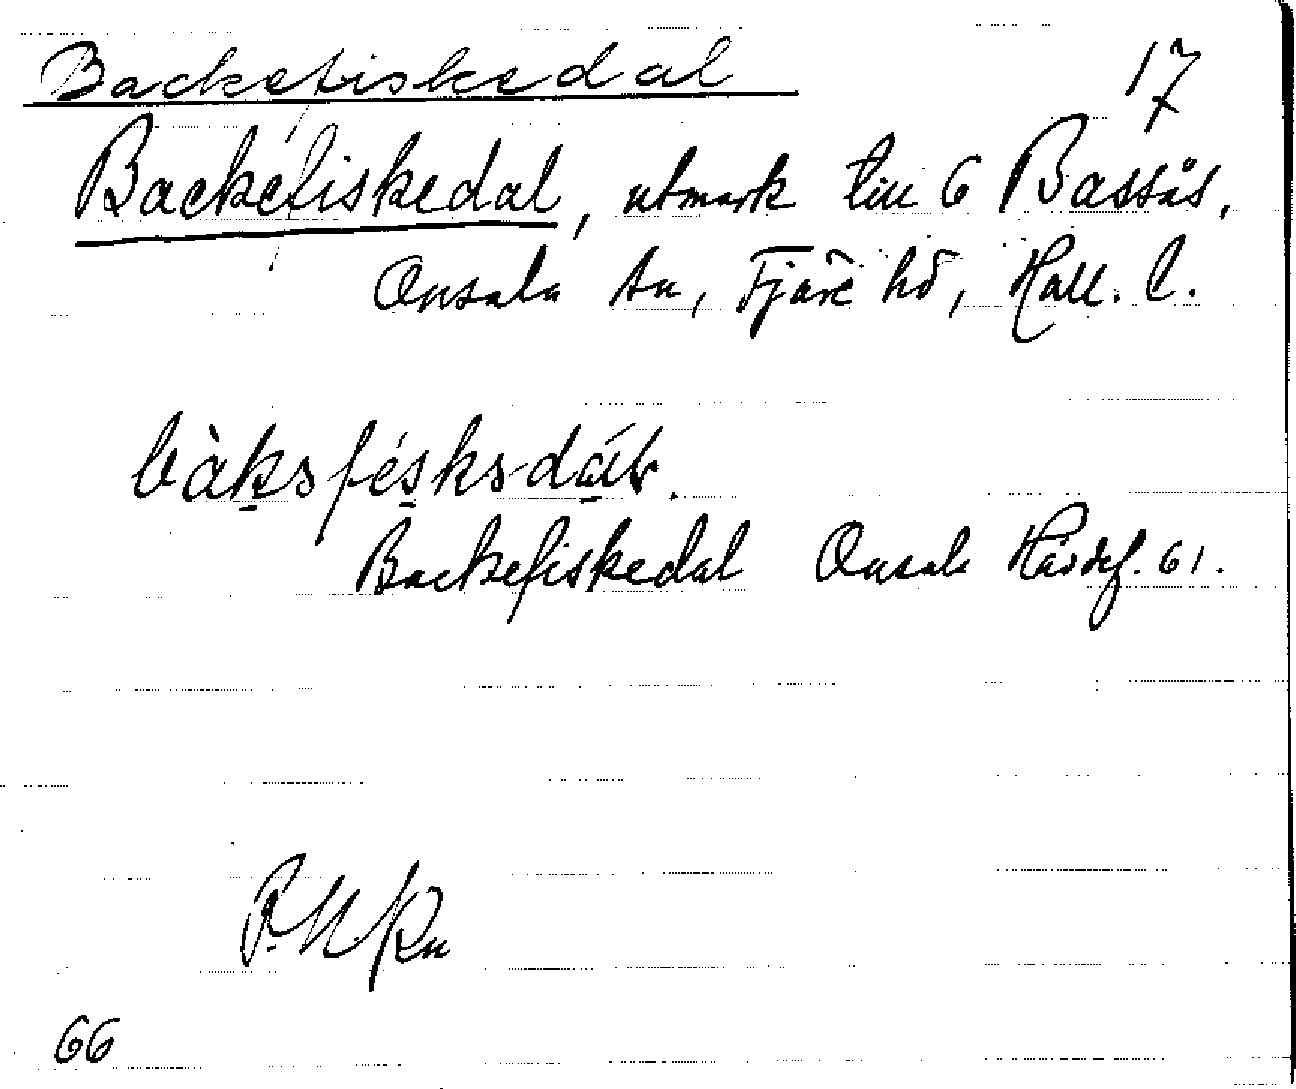 Backefiskedal 17
Backefiskedal, utmark till 6 Bassås,
Onsala sn, Fjäre hd, Hall. l.
bàksfésks-dáɫ.
Backefiskedal Onsala 61.
66